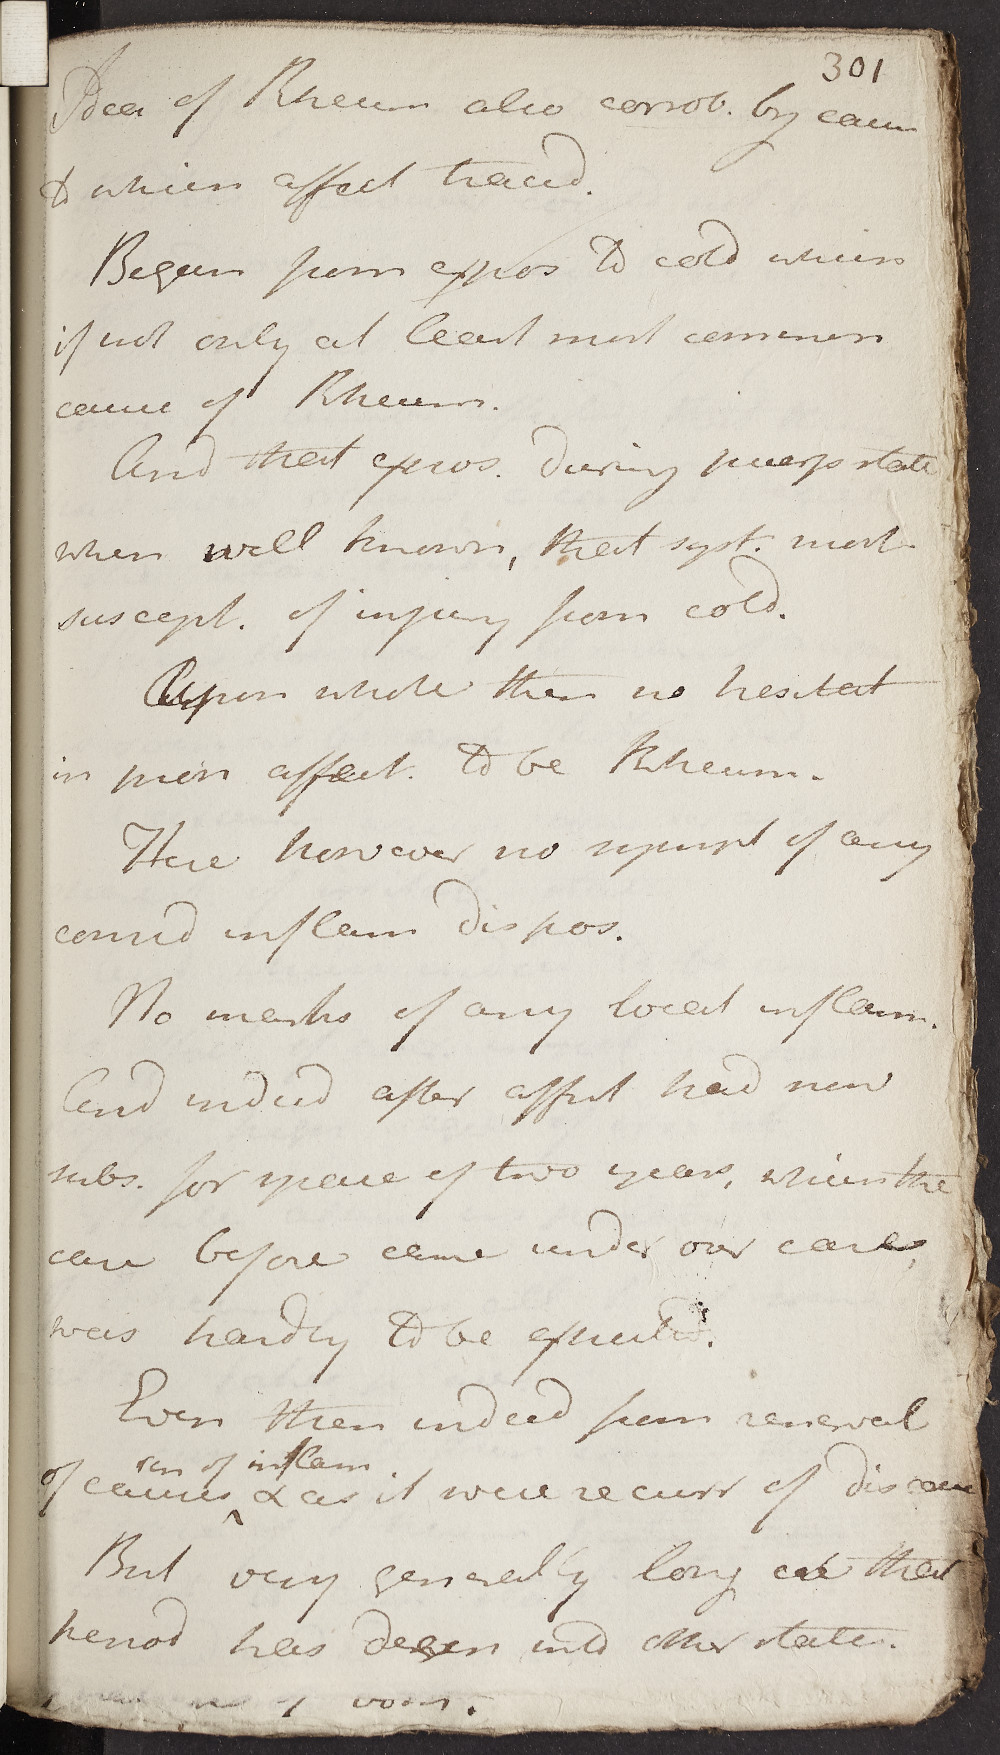 301
Idea of Rheum also corrob. by caus
to which affect traced.
Began from expos to cold which
if not only at least most common
cause of Rheum.
And that expos. during puerp state
when well known, that syst. most
suscept. of injury from cold.
Upon whole then no hesitat
in pron affect. to be Rheum.
Here however no sympt of any
consid inflam dispos.
No marks of any local inflam.
And indeed after affect had now
subs. for space of two years, which the
case before came under our care,
was hardly to be expected.
Even then indeed from renewal
ren of inflam
of causes & as it were recurr of disease
But very generally long ere that
period has degen into other state.